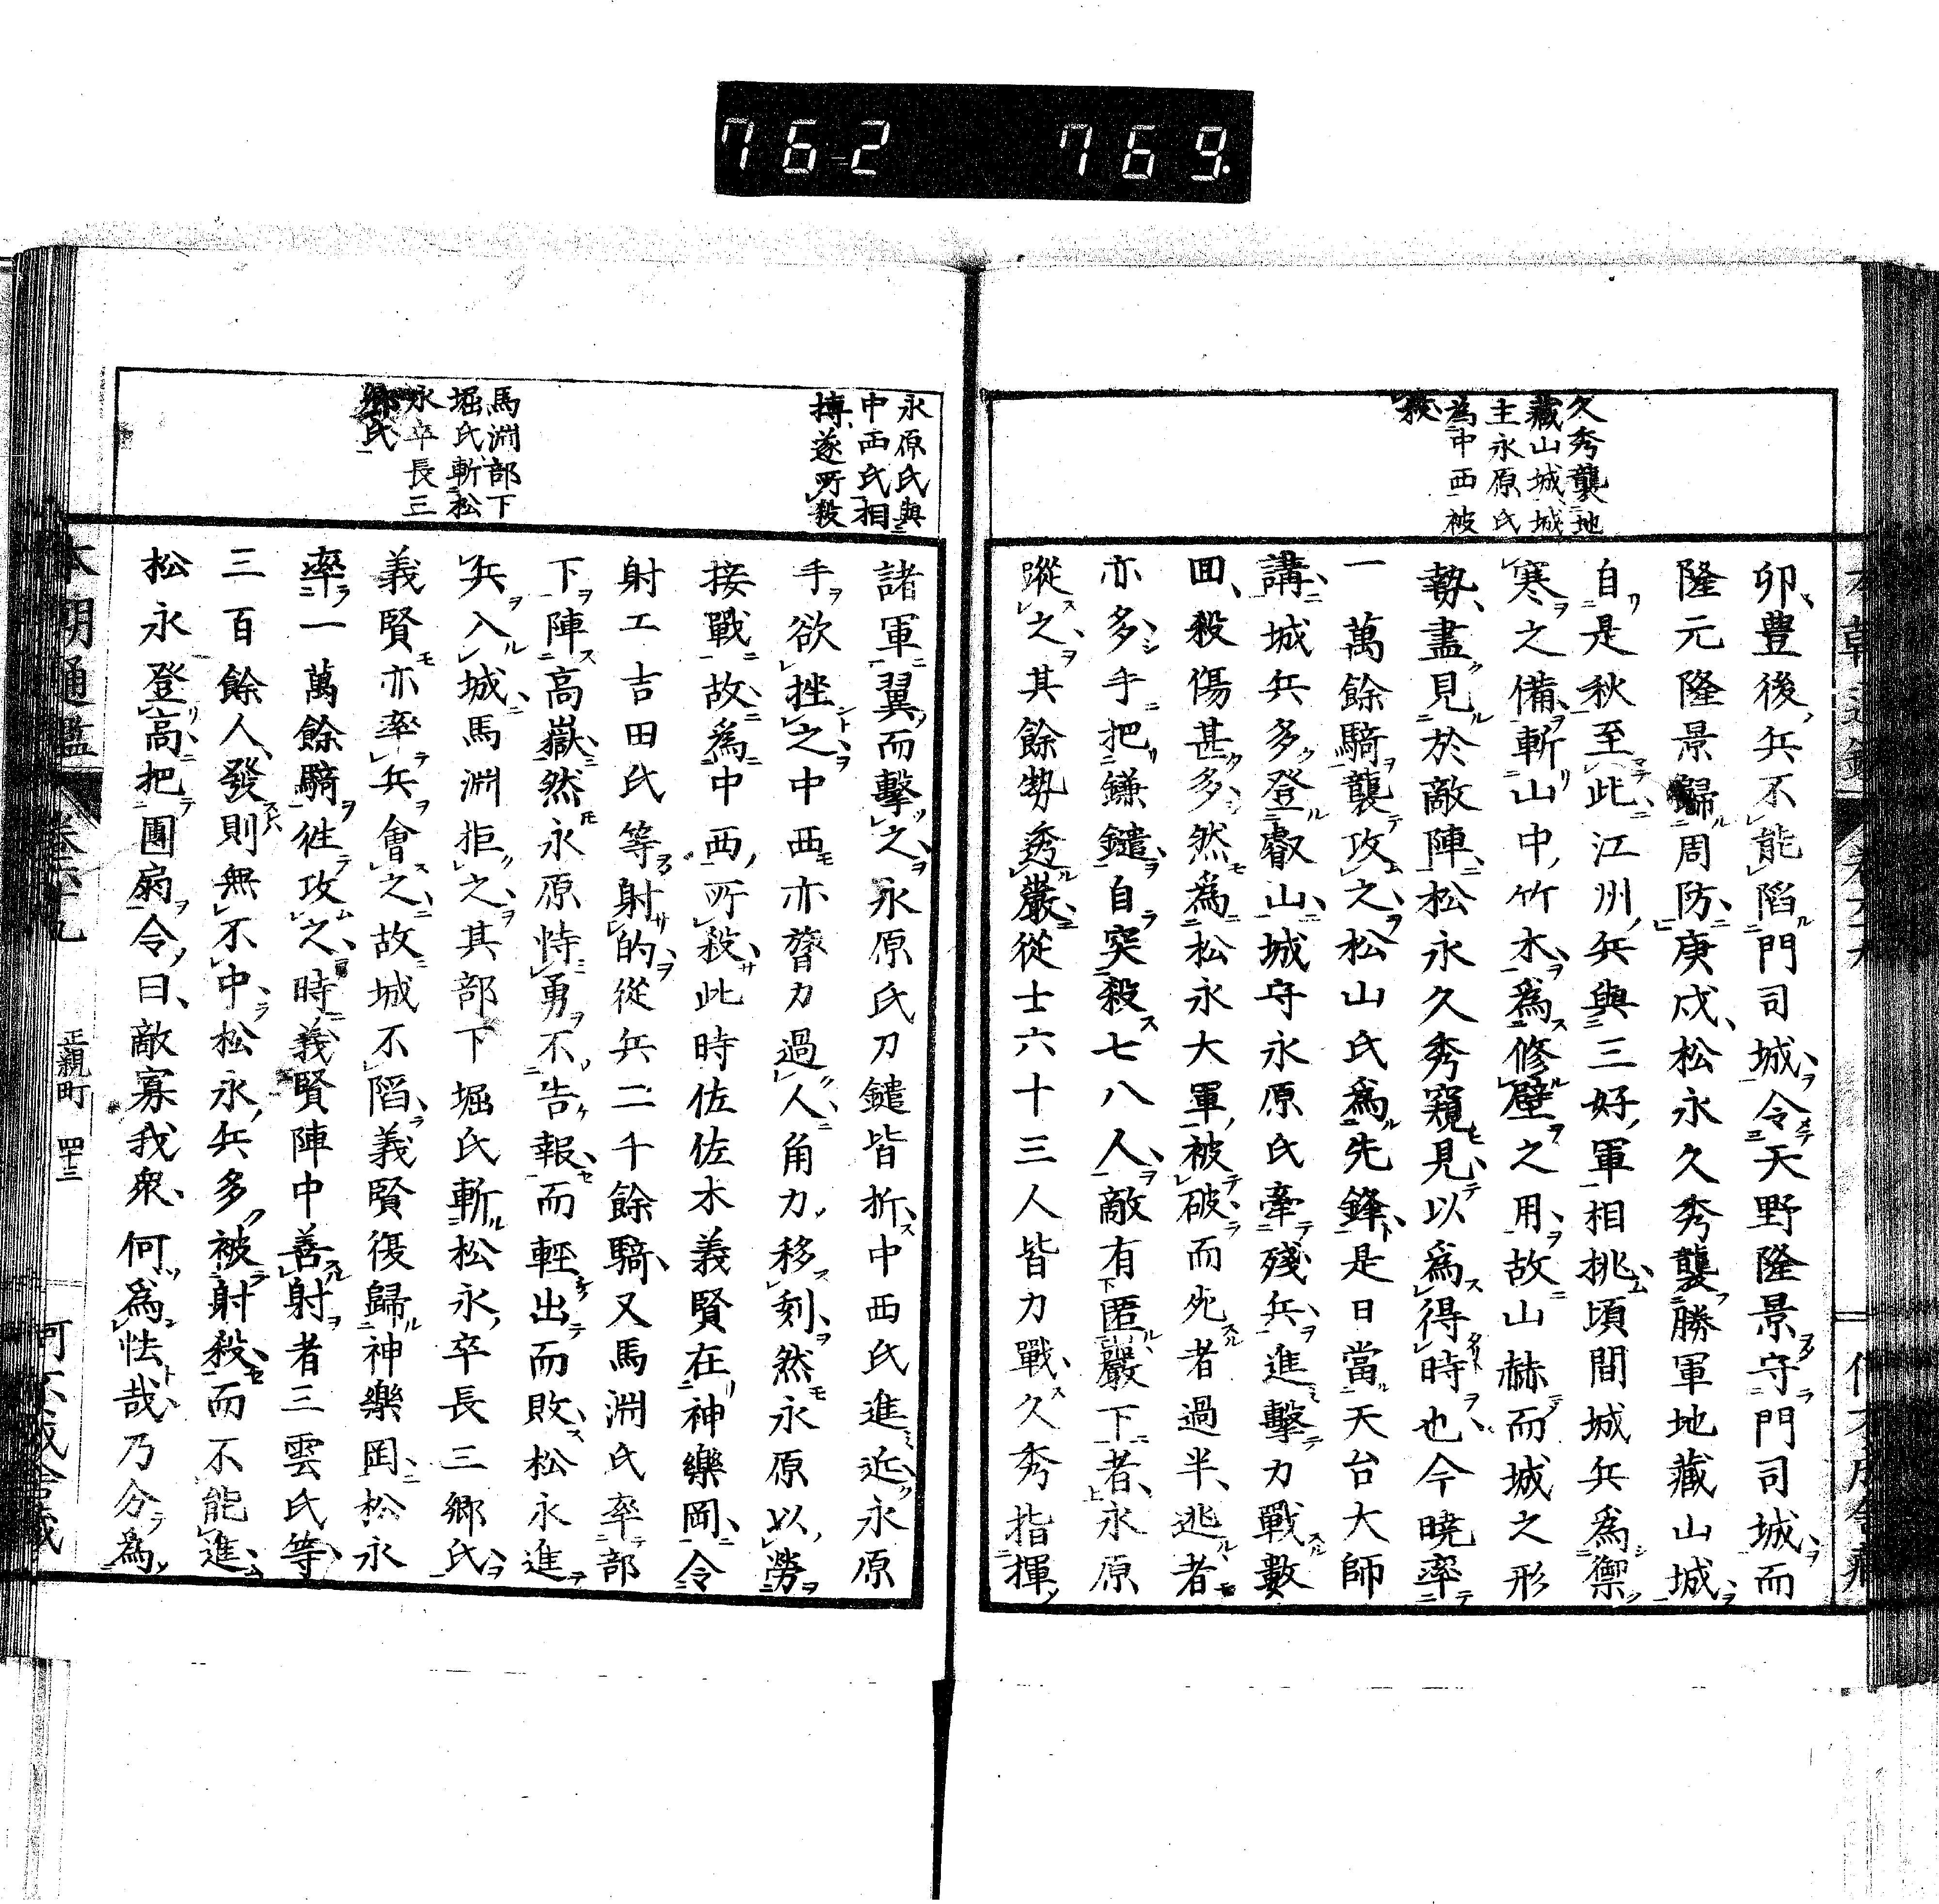 762 769.
久秀襲地
藏山城城
主永原氏
為中西被
殺
卯豊後兵不能陷門司城令天野隆景守門司城而
隆元隆景歸周防庚戌松永久秀襲勝軍地藏山城
自是秋至此江州兵與三好軍相挑頃間城兵為禦
寒之備斬山中竹木為修壁之用故山赫而城之形
勢盡見於敵陣松永久秀窺見以為得時也今曉率
一萬餘騎襲攻之松山氏為先鋒是日當天台大師
講城兵多登叡山城守永原氏牽殘兵進擊力戰數
回殺傷甚多然為松永大軍被破而死者過半逃者
亦多手把鎌鑓自突殺七八人敵有匿巖下者永原
蹤之其餘勢透巖從士六十三人皆力戰久秀指揮
永原氏與
中西氏相
搏遂所殺
馬淵部下
堀氏斬松
永卒長三
鄉氏
諸軍翼而擊之永原氏刀鑓皆折中西氏進近永原
手欲挫之中西亦膂力過人角力移刻然永原以勞
接戰故為中西所殺此時佐佐木義賢在神樂岡令
射工吉田氏等射的從兵二千餘騎又馬淵氏率部
下陣高嶽然永原恃勇不告報而輕出而敗松永進
兵入城馬淵拒之其部下堀氏斬松永卒長三鄉氏
義賢亦率兵會之故城不陷義賢復歸神樂岡松永
率一萬餘騎徃攻之時義賢陣中善射者三雲氏等
三百餘人發則無不中松永兵多被射殺而不能進
松永登高把團扇令曰敵寡我衆何為怯哉乃分為
本朝通鑑 卷六十九 正親町 四十三